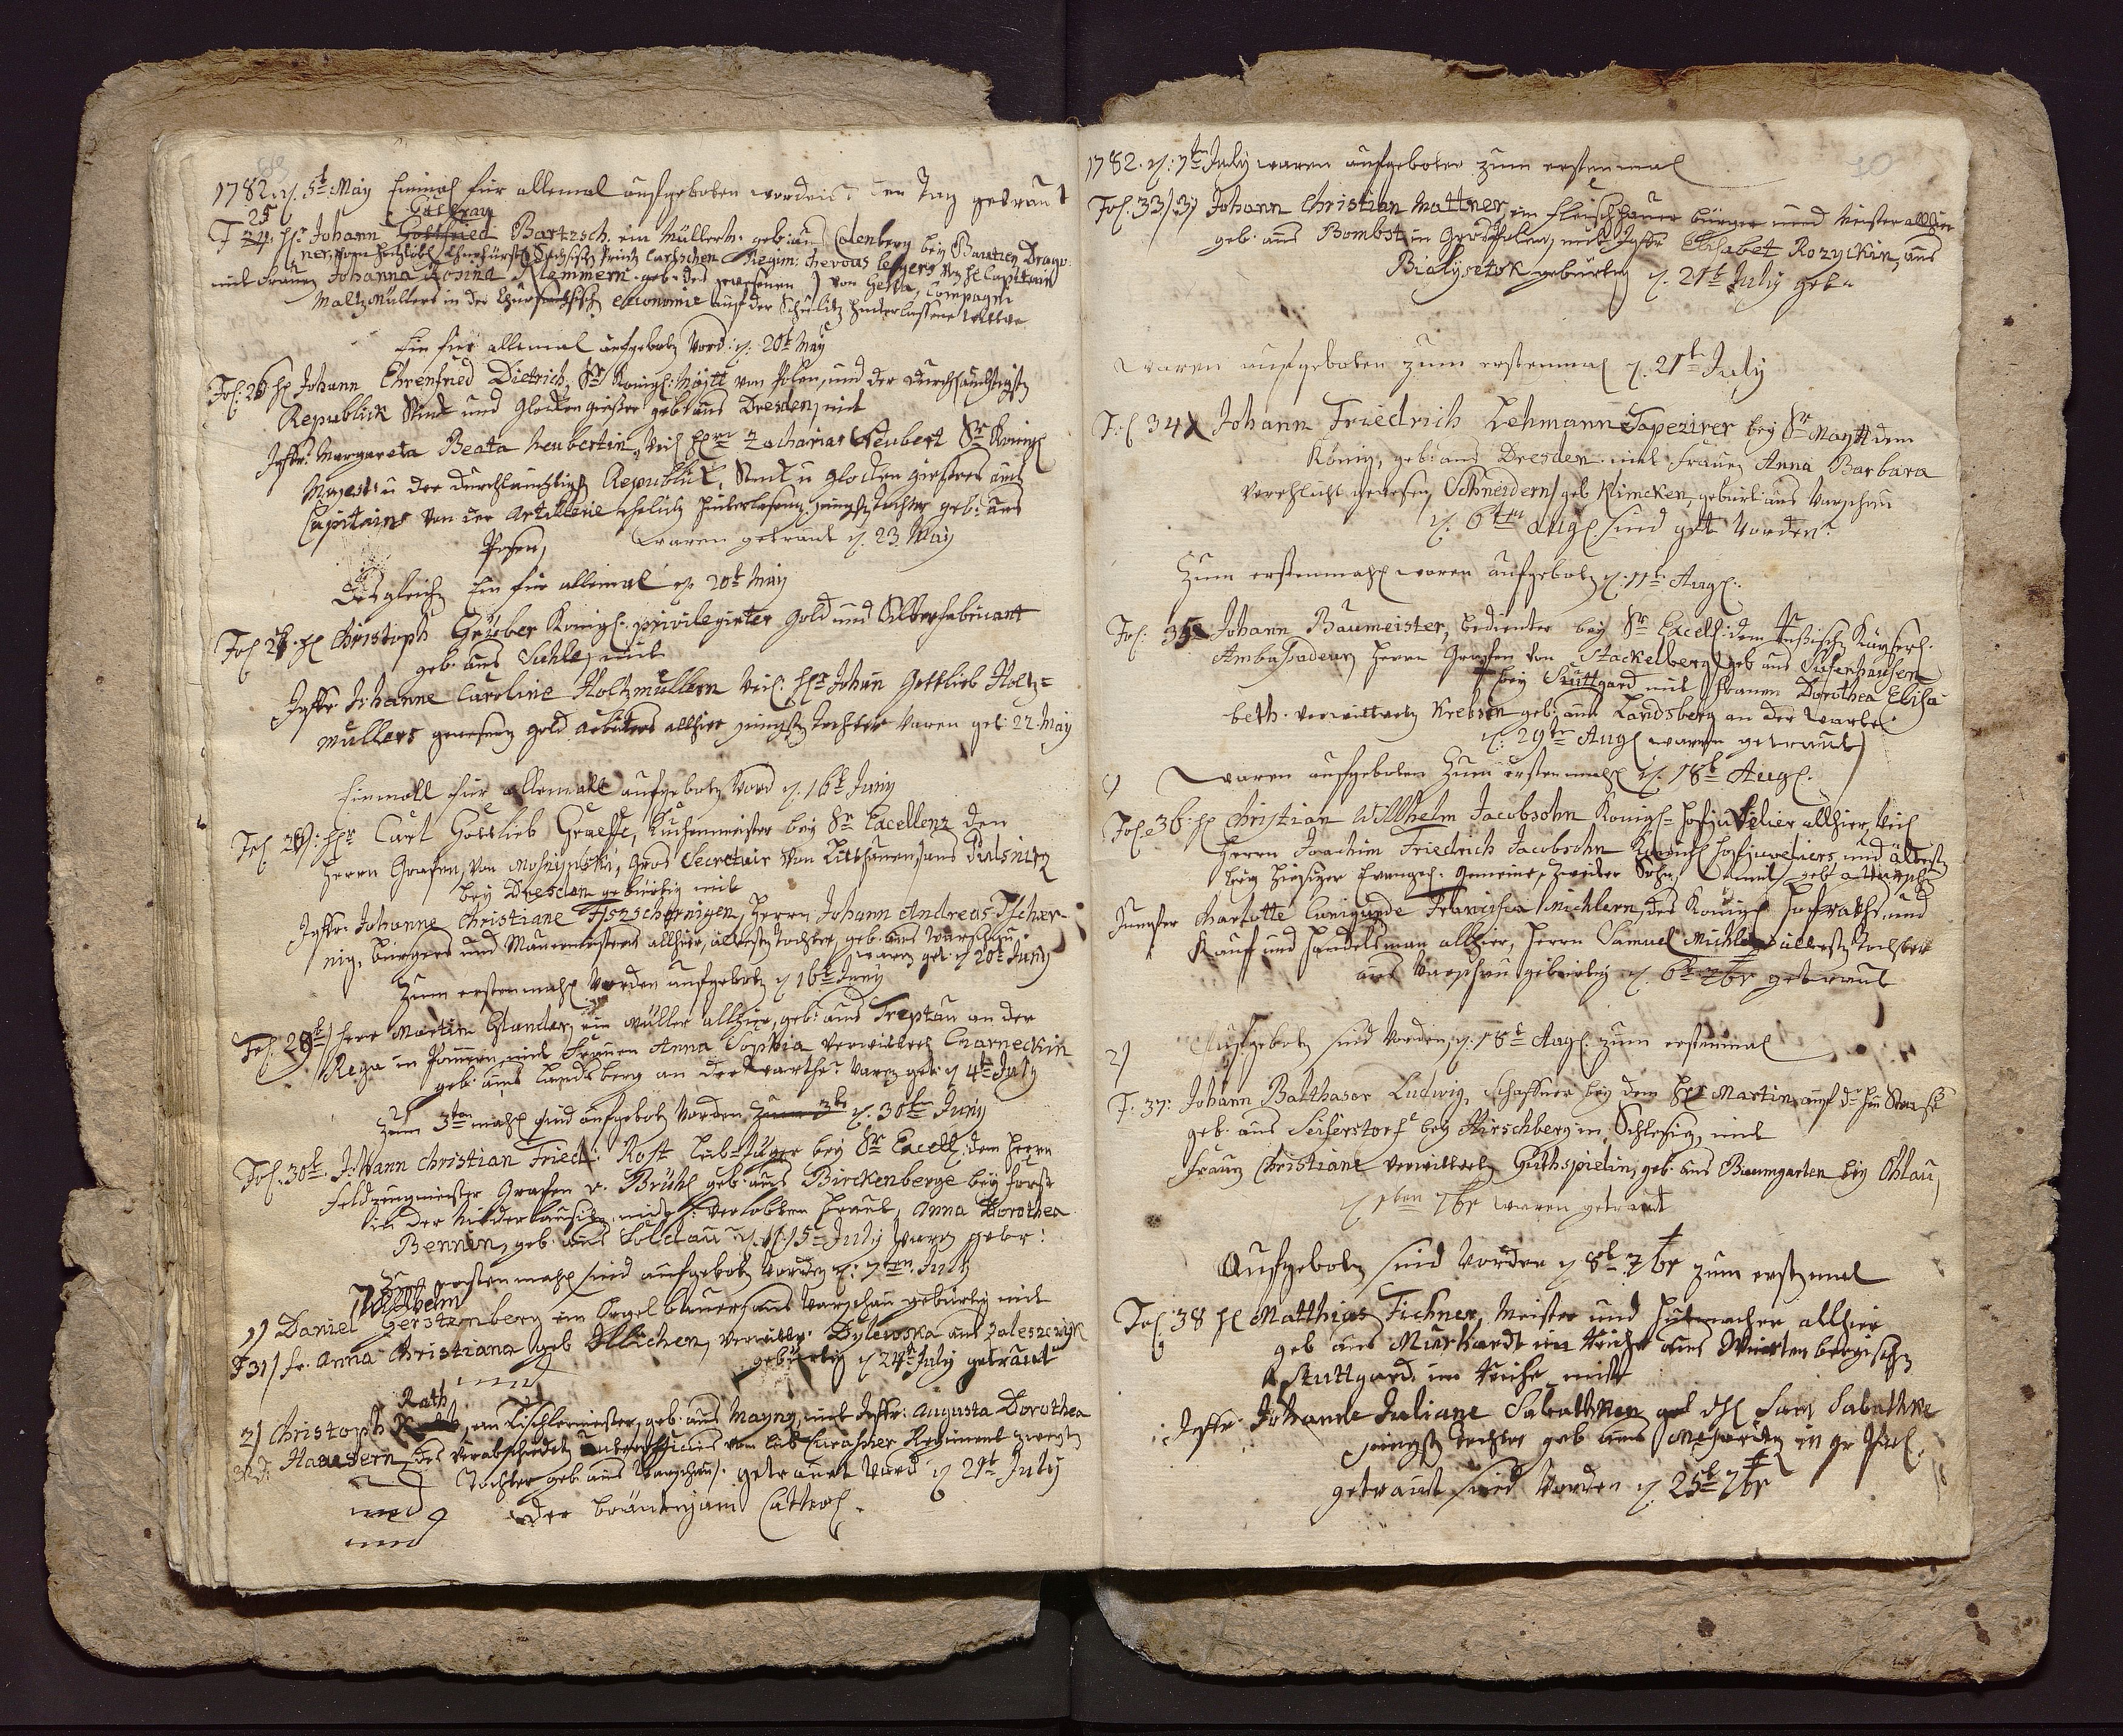 1782. d. 5t May Einmal für allemal aufgeboten worden den Tag getraut
25
F 24. Hr Johann Gottfried Bartzsch. ein Müller geb: aus Colenberg bey Bautzen Drago
ner, vom Hochlöbl. Churfürstl Sächsisch Printz Carlschen Regim: Chevous legers
mit Frauen Johanna Rosina Klemmern geb. des gewesenen von Compagn
Maltz Müllers in der Oeconomie auf der Schulitz hinterlassene Wittwe
Ein für allemal aufgebotn Word: d. 20t May
Fol: 26 H Johann Ehrenfried Dietrich, Sr Königl: Maytt von Polen, und der Durchlauchtigstn
Republick Stück und Glocken gießer geb. aus Dresden, mit
Jgfr: Margareta Beata Neubertin, Weil Hrn Zacharias Neubert Sr Königl
Majest: u der Durchlauchtigst Republick, Stück u Glocken gießers auch
Capitains Von der Artillerie ehelich hinterlasene jüngst Tochter geb: aus
Posen, waren getraut d. 23 May
Desgleich Ein für allemal d. 20t May
Fol 27. H Christoph Grüber Königl. privilegirter Gold und Silberfabricant
geb. aus Suhle, mit
Jgfr Johanne Caroline Holtzmüllern Weil. Hr Johan Gottlieb Holtz=
müllers gewesen Gold Arbeiters allhier jüngste Tochter Waren get: 22. May
Einmall für allemall aufgebotn Word d. 16t Juny
Fol 28: Hr Carl Gottlieb Graeffe, Kuchenmeister bey Sr Excellenz den
Herrn Grafen, von Moszynski, Gros Secretair von Litthauen, aus Pulsnitz
bey Dresden gebürtig mit
Jgfr: Johanne Christiane Tzschernigen, Herrn Johann Andreas Tscher-
nig. Bürgers und Mauermeisters allhier, ältesten Tochter, geb. aus Warschau
waren get. d 20t Juny
Zum erstenmahl Worden aufgebotn d 16t Juny
Fol. 29t Herr Martin Glander, ein Müller allhier, geb: aus Treptau an der
Rega in Pommern, mit Frauen Anna Sophia Verwittwet Czarneckin
geb. aus Landsberg an der Warthe Waren get: d 4t July
Zum 3ten mahl sind aufgebotn Worden d. 30t Juny
Fol: 30t. Johann Christian Fried: Rost Leib-Jäger bey Sr Excell: dem Herrn
Feldzeugmeister Grafen v. Brühl geb: aus Birckenberge bey Forst
in der Niederlausitz mit Verlobten Braut, Anna Dorothea
Bennin, geb. aus Soldau d. 15t July Waren getr:
Zum erstenmahl sind aufgebotn Worden d. 7ten July
Wilhelm
1) Daniel Gerstenberg ein Orgelbauer aus Warschau gebürtig mit
F 31) fr. Anna Christiana geb Illichen, Verwittw: Dylewska aus Zaleszczyk
gebürtig d 24t July getraut
und
Rath
2) Christoph, ein Tischlermeister, geb. aus Mayng, mit Jgfr: Augusta Dorothea
32. Haasdern, des Verabschiedetn Unterofficiers vom Leib Curassier Regiment zweyte
Tochter geb. aus Warschau. getrauet Word d 21t July
und der Bräutigam Cathol.
und
1782. d: 7tn July waren aufgeboten zum erstenmal
10
Fol. 33) 3) Johann Christian Mattner, ein Fleischhauer bürger und Meister allhier
geb. aus Bombst in Groß Polen, mit Jgfr Elisabet Rozyckin, aus
Bialystok gebürtig d. 21t July get.
waren aufgeboten zum erstenmal d. 21t July
Fol 34 Johann Friedrich Lehmann Tapezirer bey Sr Maytt dem
König, geb: aus Dresden mit Frauen Anna Barbara
Verehlicht gewesen Schneidern, geb Klimcken, gebürt aus Warschau
d. 6ten Aug. sind get Worden.
Zum erstenmahl waren aufgebotn d. 11t Aug:.
Fol: 35 Johann Baumeister, bedienter bey Sr Excell: dem Rußisch Kayserl.
Ambaßadeur, Herrn Grafen von Stackelberg, geb aus
bey Stuttgard mit Frauen Dorothea Elisa
beth. verwittwetn Krebsin geb. aus Landsberg an der Warte.
d. 29tn Aug waren getraut
1) waren aufgeboten Zum erstenmahl d. 18t Aug.
Fol. 36. H Christian Willhelm Jacobsohn Königl. Hofjuvelier allhier, Weil
Herrn Joachim Friedrich Jacobsohn Königl Hofjuveliers, und ältester
bey hiesiger Evangel: Gemeine, Zweiter Sohn, mit
Jumfer Charlotte Cunigunde Francisca Michlern, des Königl Hofraths und
Kauf und Handelsman allhier, Herrn Samuel Michler ältesten Tochter
aus Warschau gebürtig d. 6t 7br getraut
2) Aufgebotn sind Worden, d. 18t Aug. zum erstenmal
F. 37: Johann Balthasar Ludwig, Schaffner bey dem Hr Martin auf d
geb. aus Seiferstorf bey Hirschberg in Schlesig, mit
Frauen Christiane Verwittwetn Guthspielin, geb. aus Baumgarten bey Ohlau,
d 1ten 7br waren getraut
Aufgebotn sind Worden d 8t 7br zum erstenmal
Fol. 38 H Matthias Fichner, Meister und Hutmacher allhier
geb aus Murhardt im Reiche aus Würtenbergischn
Stuttgard, im Reiche mit
Jgfr. Johanne Juliane Sabathken Sabathke
jüngst Tochter geb aus Meseritz in gr Pol.
getraut sind Worden d. 25t 7br